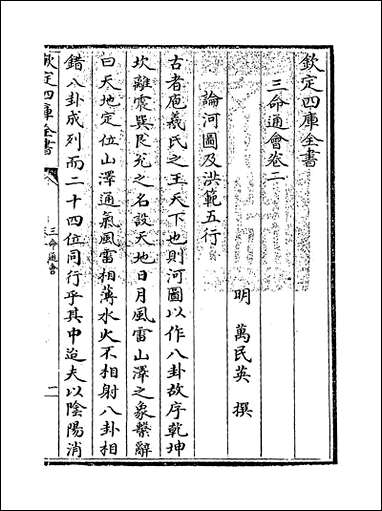 欽定四庫全書
三命通會卷二
明 萬民英 撰
論河圖及洪範五行
古者庖羲氏之王天下也則河圖以作八卦故序乾坤
坎離震巽艮兌之名設天地日月風雷山澤之象繫辭
曰天地定位山澤通氣風雷相薄水火不相射八卦相
錯八卦成列而二十四位同行乎其中迨夫以陰陽消
欽定四庫全書
三命通會